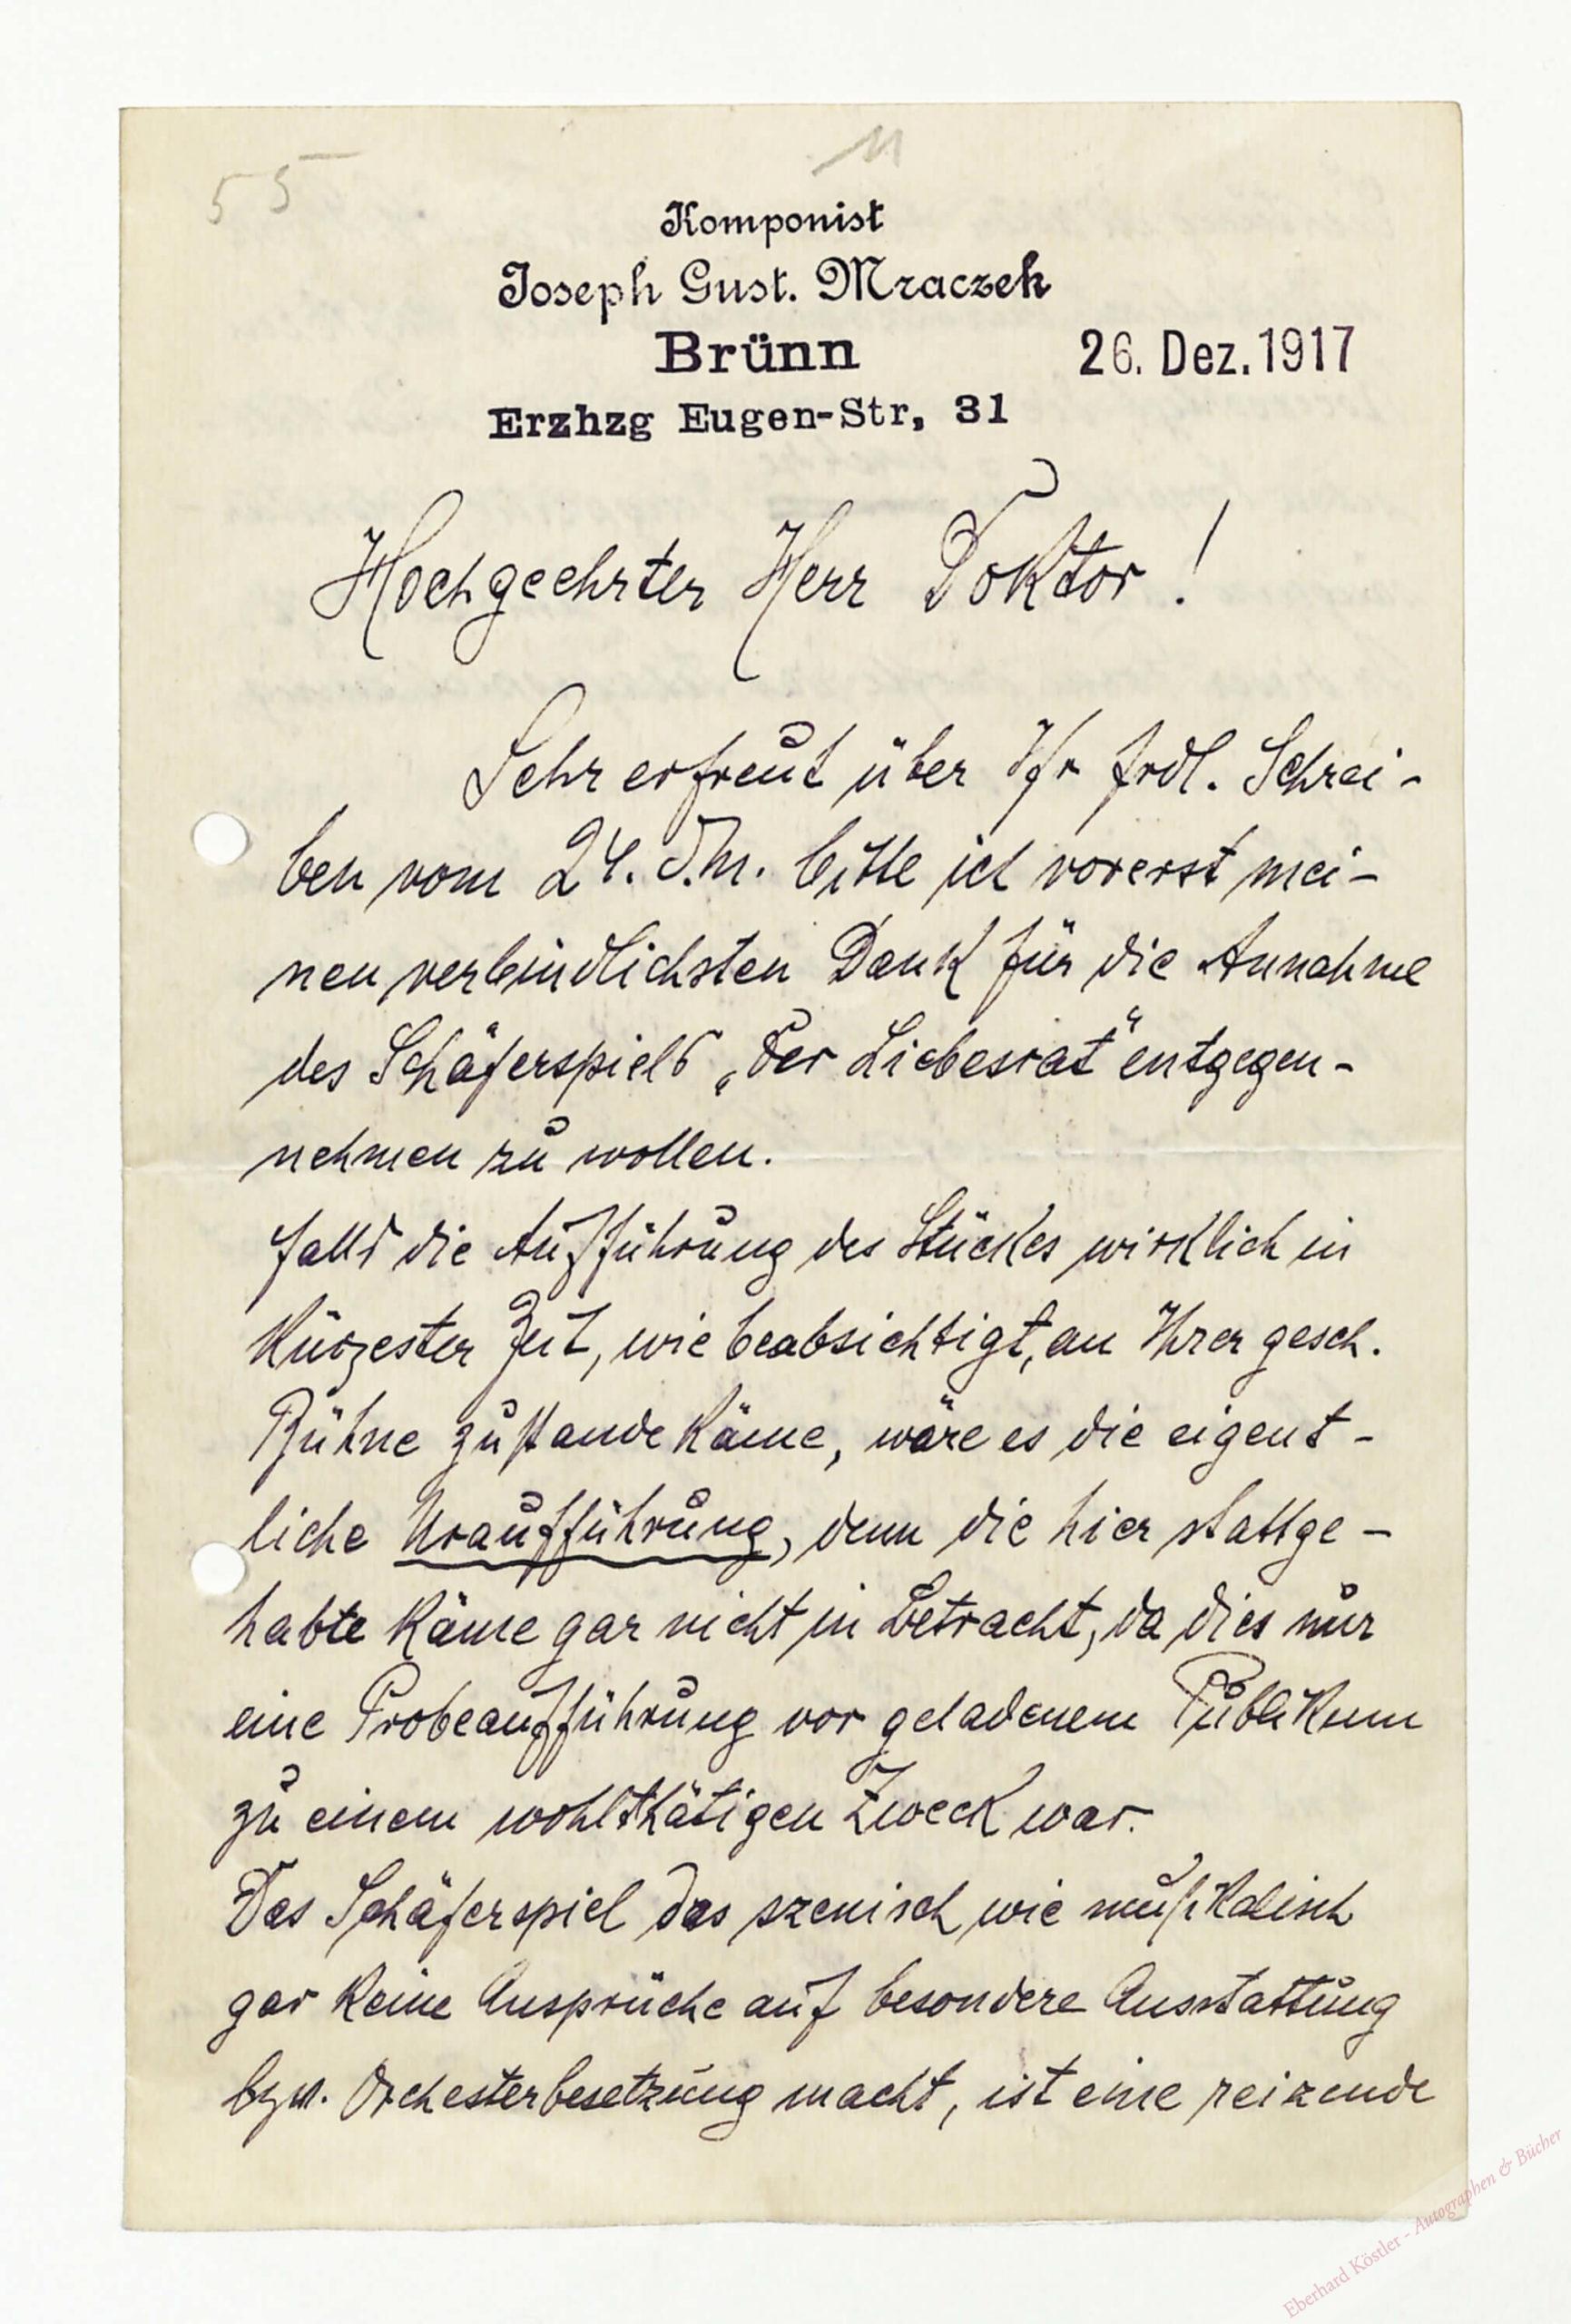 55
11
Komponist
Joseph Gust. Mraczek
Brünn
26. Dez. 1917
Erzhzg Eugen-Str, 31
Hochgeehrter Herr Doktor!
Sehr erfreut über Ihr frdl. Schrei-
ben vom 24. d.M. bitte ich vorerst mei-
nen verbindlichsten Dank für die Annahme
des Schäferspiels „Der Liebesrat“ entgegen-
nehmen zu wollen.
Falls die Aufführung des Stückes wirklich in
kürzester Zeit, wie beabsichtigt, an Ihrer gesch.
Bühne zustande käme, wäre es die eigent-
liche Uraufführung, denn die hier stattge-
habte käme gar nicht in Betracht, da dies nur
eine Probeaufführung vor geladenem Publikum
zu einem wohlthätigen Zweck war.
Das Schäferspiel das szenisch wie musikalisch
gar keine Ansprüche auf besondere Ausstattung
bzw. Orchesterbesetzung macht, ist eine reizende
Eberhard Köstler - Autographen & Bücher